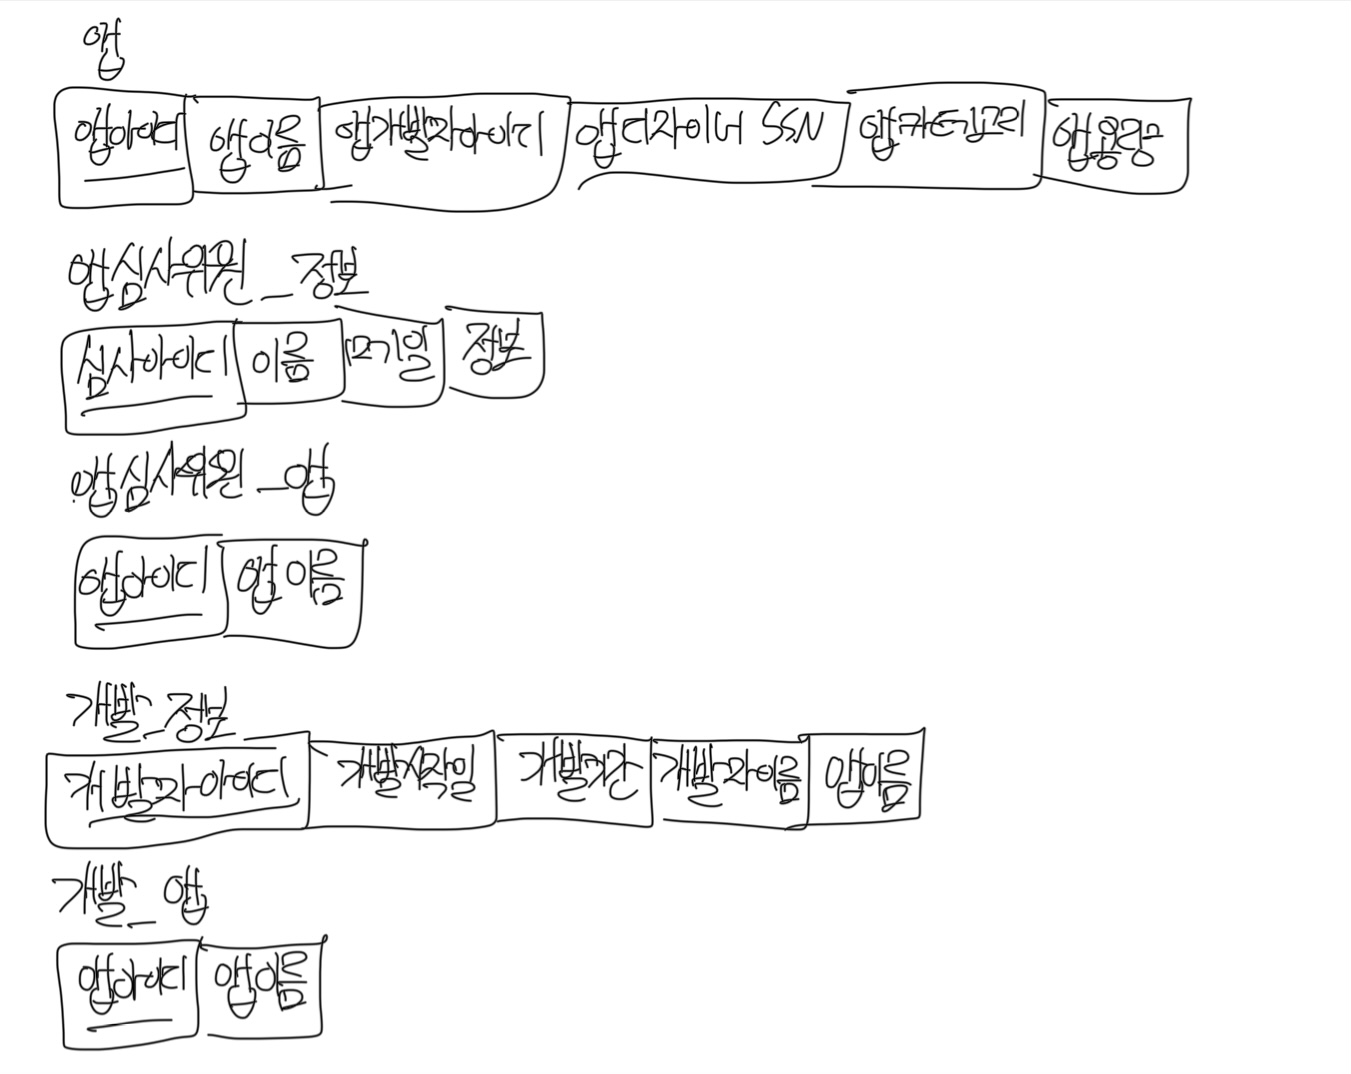 앱
앱아이디 앱이름 앱개발자아이디 앱디자이너 SSN 앱카테고리 앱용량
앱심사위원_정보
심사아이디 이름 정보
앱심사위원_앱
앱아이디 앱이름
개발_정보
개발자아이디 개발시작일 개발기간 개발자이름 앱이름
개발_앱
앱아이디 앱이름